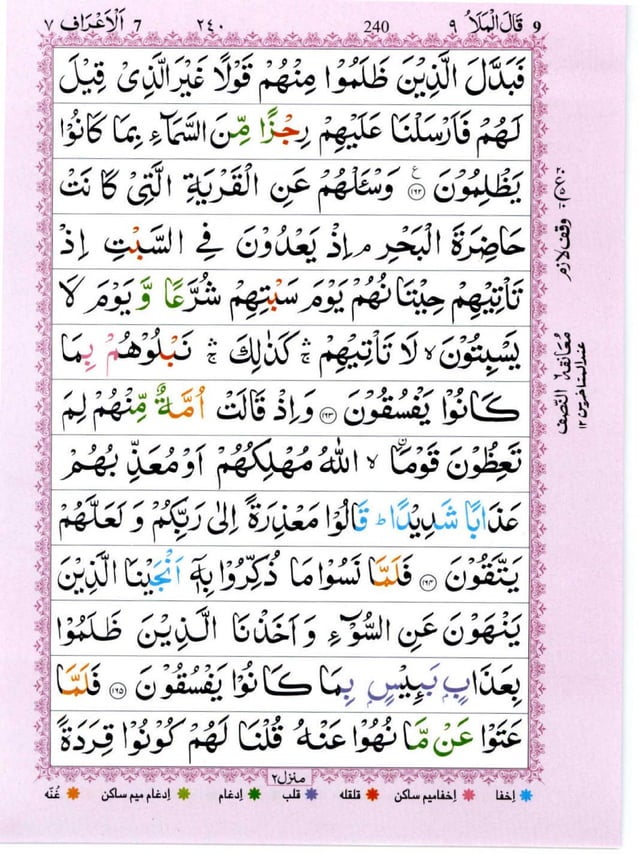 ٩ قَالَ الْمَلَاُ ٩ 240 ٢٤٠ 7 اَلْاَعْرَاف ٧
فَبَدَّلَ الَّذِيْنَ ظَلَمُوْا مِنْهُمْ قَوْلًا غَيْرَ الَّذِىْ قِيْلَ
لَهُمْ فَاَرْسَلْنَا عَلَيْهِمْ رِجْزًا مِّنَ السَّمَآءِ بِمَا كَانُوْا
يَظْلِمُوْنَ ࣖ ﴿١٦٢﴾ وَسْـَٔلْهُمْ عَنِ الْقَرْيَةِ الَّتِىْ كَانَتْ
حَاضِرَةَ الْبَحْرِ ۘ اِذْ يَعْدُوْنَ فِى السَّبْتِ اِذْ
تَاْتِيْهِمْ حِيْتَانُهُمْ يَوْمَ سَبْتِهِمْ شُرَّعًا وَّ يَوْمَ لَا
يَسْبِتُوْنَ ۙ لَا تَاْتِيْهِمْ ۛ كَذٰلِكَ ۛ نَبْلُوْهُمْ بِمَا
كَانُوْا يَفْسُقُوْنَ ﴿١٦٣﴾ وَاِذْ قَالَتْ اُمَّةٌ مِّنْهُمْ لِمَ
تَعِظُوْنَ قَوْمًا ۙ اللّٰهُ مُهْلِكُهُمْ اَوْ مُعَذِّبُهُمْ
عَذَابًا شَدِيْدًا ؕ قَالُوْا مَعْذِرَةً اِلٰى رَبِّكُمْ وَ لَعَلَّهُمْ
يَتَّقُوْنَ ﴿١٦٤﴾ فَلَمَّا نَسُوْا مَا ذُكِّرُوْا بِهٖۤ اَنْجَيْنَا الَّذِيْنَ
يَنْهَوْنَ عَنِ السُّوْٓءِ وَ اَخَذْنَا الَّذِيْنَ ظَلَمُوْا
بِعَذَابٍ بَـِٕيْسٍ بِمَا كَانُوْا يَفْسُقُوْنَ ﴿١٦٥﴾ فَلَمَّا
عَتَوْا عَنْ مَّا نُهُوْا عَنْهُ قُلْنَا لَهُمْ كُوْنُوْا قِرَدَةً
منزل ٢
اِخفا اِخفامیم ساکن قلقله قلب اِدغام اِدغام میم ساکن غُنّه
وقف لازم
معانقة
النصف
عند المتأخرين ١٢